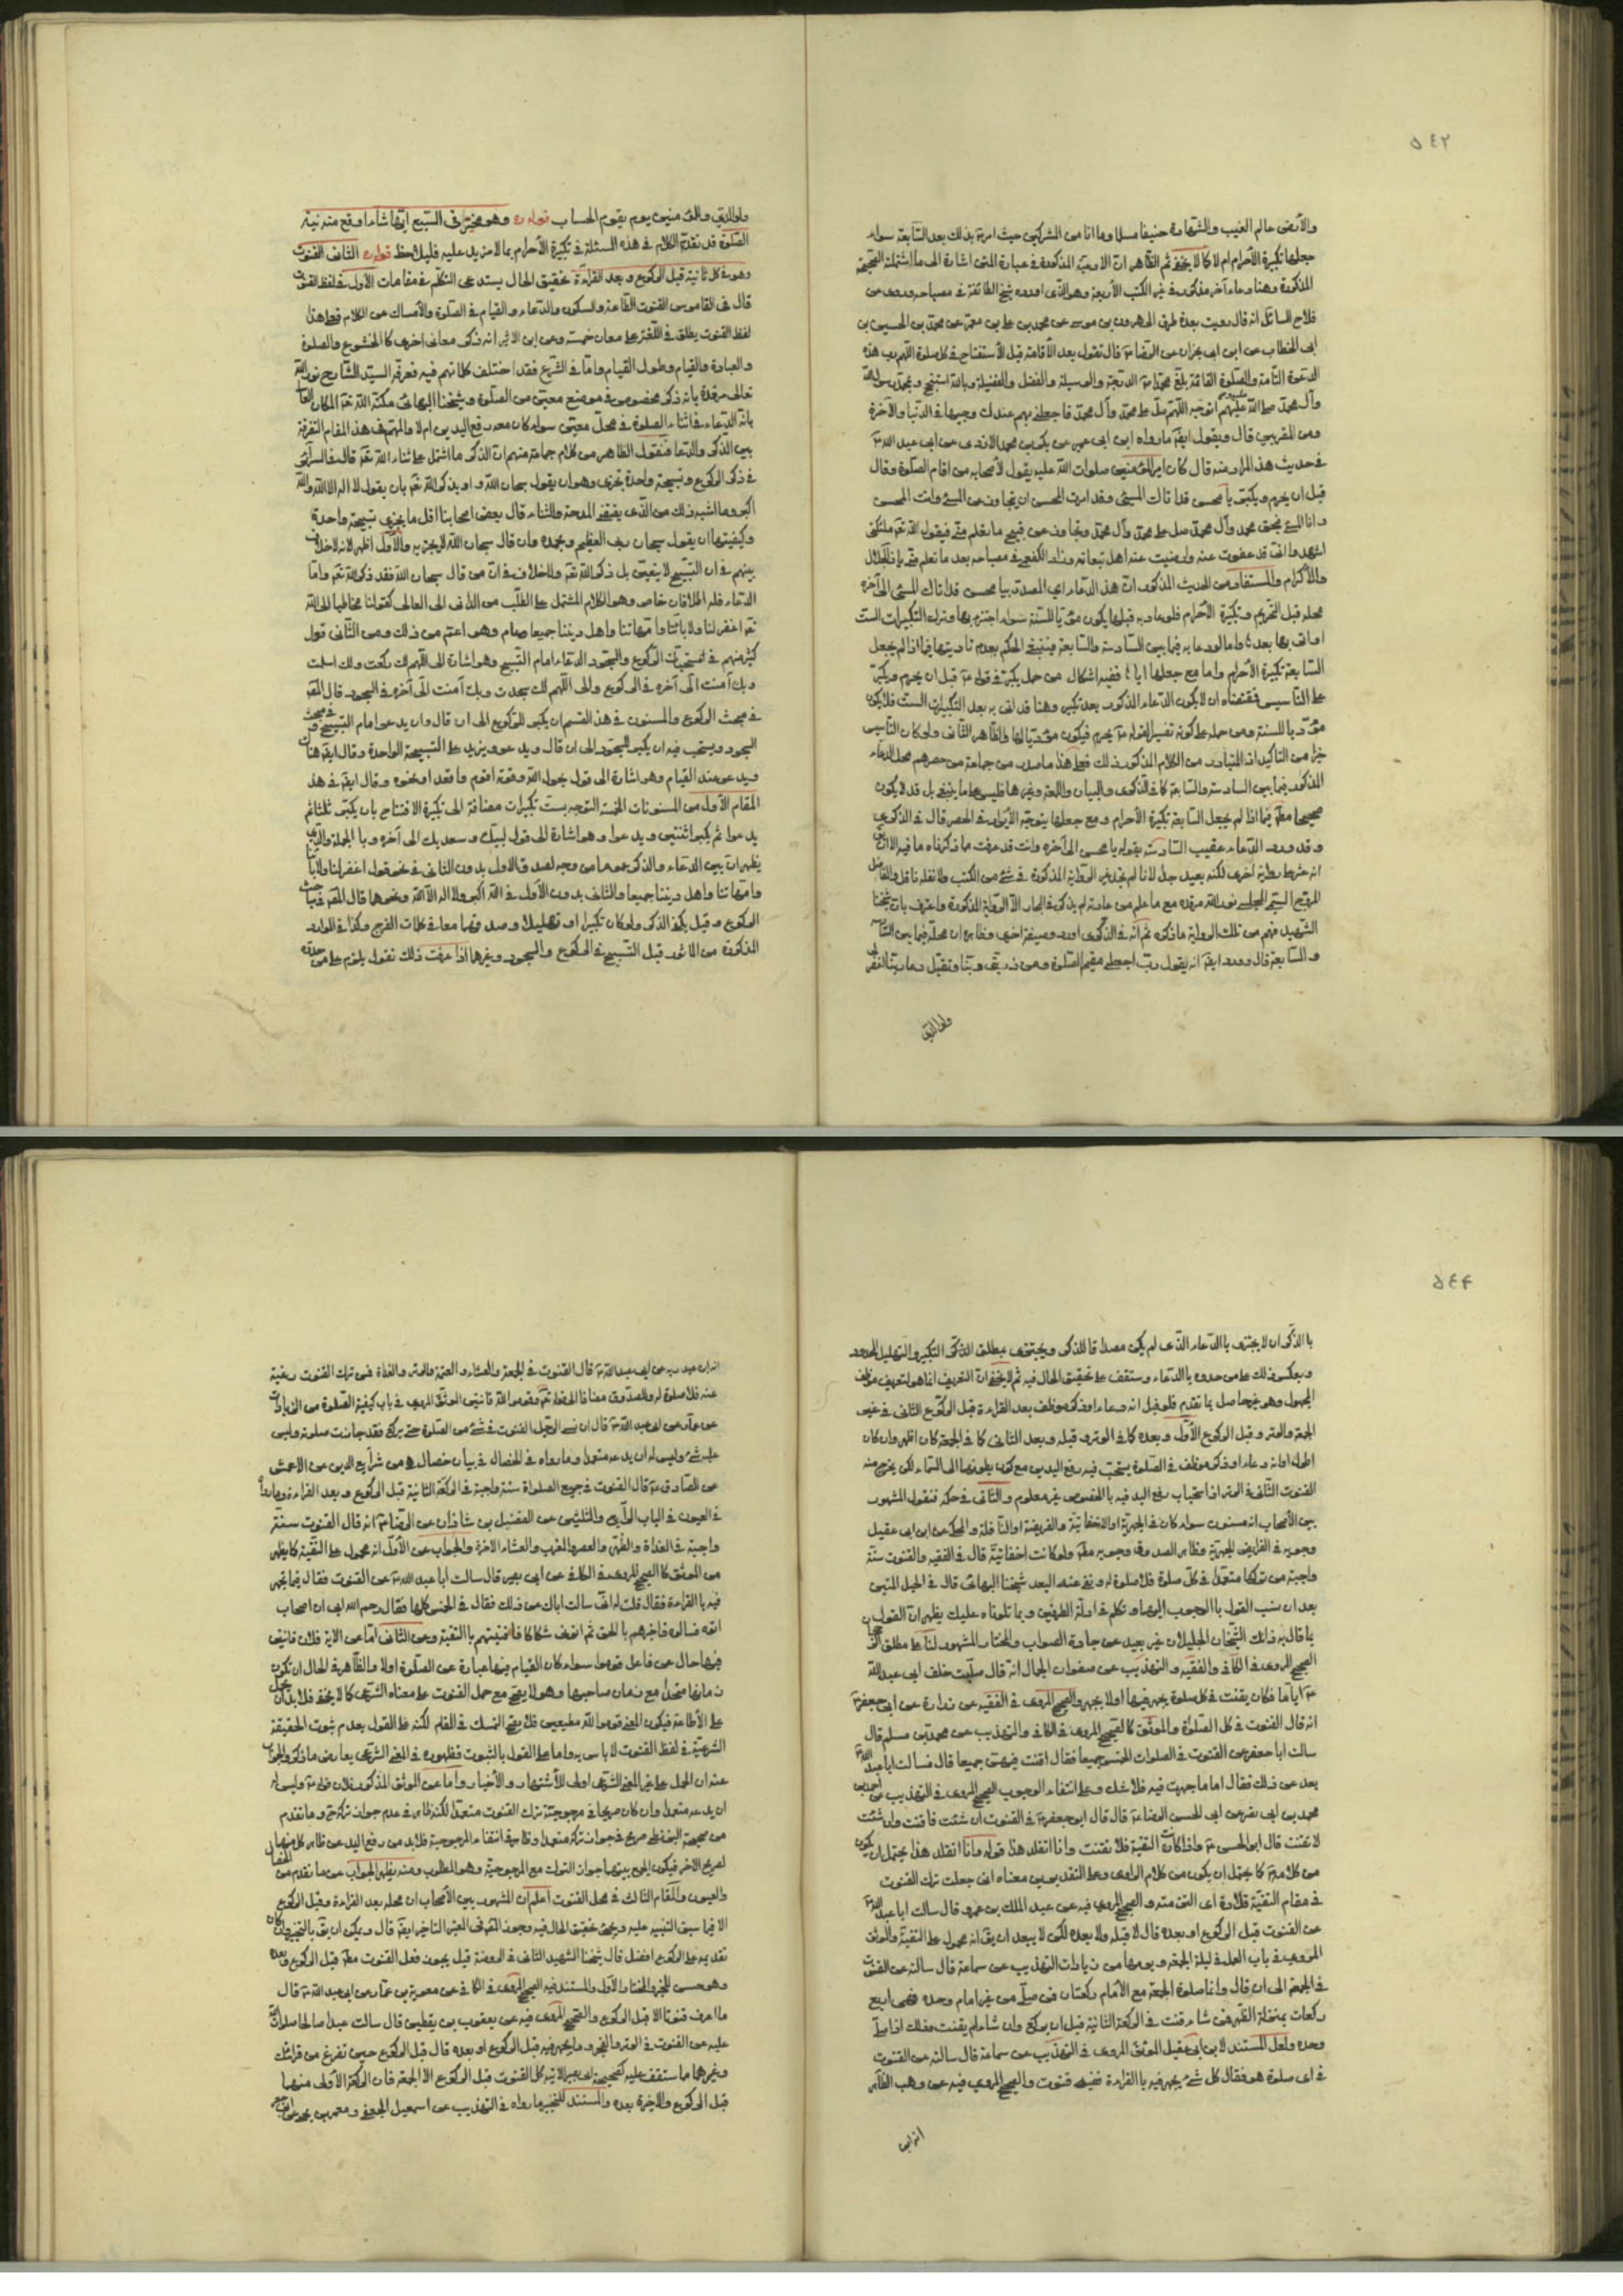 ٥٤٢
والأرض عالم الغيب والشهادة حنيفا مسلما وما انا من المشركين حيث امر بذلك بعد السابعة سواء
جعلها تكبيرة الأحرام ام لا كما لا يخفى ثم الظاهر ان الادعية المذكورة في عبارة المتن اشارة الى ما اشتملة الصحيحة
المذكورة وهنا دعاء آخر مذكور في غير الكتب الأربعة وهو الذى اورده شيخ الطائفة في مصباحه وروى من
فلاح السائل انه قال رويت بعدة طرق الى هرون بن موسى عن محمد بن على بن معمر عن محمد بن الحسين بن
ابى الخطاب عن ابن ابى نجران عن الرضا ع قال تقول بعد الأقامة قبل الأستفتاح في كل صلوة اللهم رب هذه
الدعوة التامة والصلوة القائمة بلغ محمدا ص الدرجة والوسيلة والفضل والفضيلة وبالله استفتح وبمحمد رسول الله
وآل محمد صلى الله عليهم اتوجه اللهم صل على محمد وآل محمد فاجعلنى بهم عندك وجيها في الدنيا والآخرة
ومن المقربين قال ويقول ايضا مارواه ابن ابى عمير عن بكر بن محمد الازدى عن ابى عبد الله ع
في حديث هذا المراد منه قال كان امير المؤمنين صلوات الله عليه يقول لأصحابه من اقام الصلوة وقال
قبل ان يحرم ويكبر يا محسن قد اتاك المسئ وقد امرت المحسن ان يتجاوز عن المسئ وانت المحسن
وانا المسئ بحق محمد وآل محمد صل على محمد وآل محمد وتجاوز عن قبيح ما تعلم منى فيقول الله تعم ملئكتى
اشهدوا انى قد عفوت عنه وارضيت عنه اهل تبعاته وزاد الكفعمى في مصباحه بعد ما تعلم منى يا ذا الجلال
والأكرام والمستفاد من الحديث المذكور ان هذا الدعاء اي المصدر بيا محسن قد اتاك المسئ الى آخره
محله قبل التحريم وتكبيرة الأحرام فلو دعا به قبلها يكون مؤديا للسنة سواء اجتزء بها وترك التكبيرات الست
او اتى بها بعدها واما لو دعا به فيما بين السادسة والسابعة فينبغى الحكم بعدم تاديتها فيما اذا لم يجعل
السابعة تكبيرة الأحرام واما مع جعلها اياها ففيه اشكال من حمل يكبر في قوله ع قبل ان يحرم ويكبر
على التاسيس فمقتضاه ان لا يكون الدعاء المذكور بعد تكبير وهنا قد اتى به بعد التكبيرات الست فلا يكون
مؤديا للسنة ومن حمله على كونه تفسيرا لقوله ع يحرم فيكون مؤديا لها والظاهر الثانى ولو كان التاسيس
خيرا من التاكيد اذ المتبادر من الكلام المذكور ذلك فعلى هذا ما صدر من جماعة من حصرهم محل الدعاء
المذكور فيما بين السادسة والسابعة كما في الذكرى والبيان واللمعة وغيرها فليس على ما ينبغى بل قد لا يكون
صحيحا مطلقا فيما اذا لم يجعل السابعة تكبيرة الأحرام ومع جعلها يتوجه الأيراد في الحصر قال في الذكرى
وقد ورد الدعاء عقيب السادسة بقوله يا محسن الى آخره وانت قد عرفت ما ذكرناه ما فيه الا ان
انه عثر بط رواية اخرى لكنه بعيد جدا لانا لم نجد غير الرواية المذكورة في شئ من الكتب ولا نقله ناقل والفاضل
المروج السمى المجلسى نور الله مرقده مع ما علم من عادته لم يذكر في البحار الا الرواية المذكورة واعترف بان شيخنا
الشهيد فهم من تلك الرواية ما ذكره ثم انه في الذكرى اورد وصيفة اخرى وظاهره ان محله فيما بين السادسة
والسابعة قال وورد ايضا انه يقول رب اجعلنى مقيم الصلوة ومن ذريتى ربنا وتقبل دعا ربنا اغفر لى
ولوالدي
ولوالدي والمؤمنين يوم يقوم الحساب قوله ره وهو مخير في السبع ايها شاء اوقع منه نية
الصلوة قد تقدم الكلام في هذه المسئلة في تكبيرة الأحرام بما لا مزيد عليه فليلاحظ قوله ره الثانى القنوت
وهو في كل ثانية قبل الركوع وبعد القراءة تحقيق الحال يستدعى التكلم في مقامات الأول في لفظ القنوت
قال في القاموس القنوت الطاعة والسكوت والدعاء والقيام في الصلوة والأمساك عن الكلام فعلى هذا
لفظ القنوت يطلق في اللغة على معان خمسة وعن ابن الاثير انه ذكر معانى اخرى كالخشوع والصلوة
والعبادة والقيام وطول القيام واما في الشرع فقد اختلف كلماتهم فيه فعرفه السيد الشارح نور الله
تعالى مرقده بانه ذكر مخصوص في موضع معين من الصلوة وشيخنا البهائى مكنه الله تعم المكان العالى
بانه الدعاء في اثناء الصلوة في محل معين سواء كان معه رفع اليدين ام لا والمهتم في هذا المقام التفرقة
بين الذكر والدعا فنقول الظاهر من كلام جماعة منهم ان الذكر ما اشتمل على ثناء الله تعم قال في السرائر
في ذكر الركوع وتسبيحة واحدة تجزى وهو ان يقول سبحان الله او يذكر الله تعم بان يقول لا اله الا الله والله
اكبر وما اشبه ذلك من الذى يقتضى المدحة والثناء قال بعض اصحابنا اقل ما يجزى تسبيحة واحدة
وكيفيتها ان يقول سبحان ربى العظيم وبحمده وان قال سبحان الله لا يجزيه والأول اظهر لانه لا خلاف
بينهم في ان التسبيح لا يتعين بل ذكر الله تعم ولا خلاف في ان من قال سبحان الله فقد ذكر الله تعم واما
الدعاء فله اطلاقان خاص وهو الكلام المشتمل على الطلب من الدانى الى العالى كقولنا مخاطبا الى الله
تعم اغفر لنا ولابائنا وامهاتنا واهل ديننا جميعا وعام وهو اعم من ذلك ومن الثانى قول
كثير منهم في مستحبات الركوع والسجود الدعاء امام التسبيح وهو اشارة الى اللهم لك ركعت ولك اسلمت
وبك آمنت الى آخره في الركوع والى اللهم لك سجدت وبك آمنت الى آخره في السجود قال المصنف
في مبحث الركوع والمسنون في هذا القسم ان يكبر للركوع الى ان قال وان يدعو امام التسبيح وفي مبحث
السجود ويستحب فيه ان يكبر للسجود الى ان قال ويدعو ويزيد على التسبيحة الواحدة وقال ايضا هناك
ويدعو عند القيام وهو اشارة الى قول بحول الله وقوته اقوم واقعد او نحوه وقال ايضا في هذا
المقام الأول من المسنونات الخمسة التوجه بست تكبيرات مضافة الى تكبيرة الافتتاح بان يكبر ثلثا ثم
يدعوا ثم يكبر اثنتين ويدعوا وهو اشارة الى قول لبيك وسعديك الى آخره وبالجملة والذى
يظهر ان بين الدعاء والذكر عموما من وجه لصدق الاول بدون الثانى في نحو قول اغفر لنا ولابائنا
وامهاتنا واهل ديننا جميعا والثانى بدون الأول في الله اكبر ولا اله الا الله ونحوها قال المصنف في مبحث
الركوع وقيل يكفى الذكر ولو كان تكبيرا او تهليلا وصدقهما معا في كلمات الفرج وكذا في الموارد
المذكورة من المأثور قبل التسبيح في الركوع والسجود وغيرهما اذا عرفت ذلك نقول يلزم على من حده
٥٤٤
با الذكر ان لا يجتزى با الدعاء الذى لم يكن مصداقا للذكر ويجتزى بمطلق الذكر كالتكبير والتهليل المحدود
وبعكس ذلك على من حده با الدعاء وستقف على تحقيق الحال فيه ثم لا يخفى ان التعريف انما هو لتعريف موظف
المجهول وهو غير حاصل بما تقدم فلو قيل انه دعاء او ذكر موظف بعد القراءة قبل الركوع الثانى في غير
الجمعة والوتر وقبل الركوع الأول وبعده كما في الوتر وقبله وبعد الثانى كما في الجمعة كان اظهر وان كان
اطول او انه دعاء او ذكر موظف في الصلوة يستحب فيه رفع اليدين مع كون بطونهما الى السماء لكن يخرج منه
القنوت الثانى في الوتر اذ استحباب رفع اليد فيه با الخصوص غير معلوم والثانى في حكمه فنقول المشهور
بين الأصحاب انه مسنون سواء كان في الجهرية او الاخفاتية والفريضة او النافلة والمحكى عن ابن ابى عقيل
وجوبه في الفرايض الجهرية وظاهر الصدوق وجوبه مطلقا ولو كانت اخفاتية قال في الفقيه والقنوت سنة
واجبة من تركها متعمدا في كل صلوة فلا صلوة له ونفى عنه البعد شيخنا البهائى قال في الحبل المتين
بعد ان نسب القول با الوجوب اليهما وتكلم في ادلة الطرفين وبما تلوناه عليك يظهر ان القول
بما قال به ذانك الشيخان الجليلان غير بعيد عن جادة الصواب والمختار المشهور لنا على مطلق
الصحيح المروى في الكافى والفقيه والتهذيب عن صفوان الجمال انه قال صليت خلف ابى عبد الله
ع اياما فكان يقنت في كل صلوة يجهر فيها او لا يجهر والصحيح المروى في الفقيه عن زرارة عن ابى جعفر ع
انه قال القنوت في كل الصلوات والموثق كالصحيح المروى في الكافى والتهذيب عن محمد بن مسلم قال
سالت ابا جعفر عن القنوت في الصلوات الخمس جميعا فقال اقنت فيهن جميعا قال فسالت ابا عبد الله ع
بعد عن ذلك فقال اما ما جهرت فيه فلا شك وعلى انتفاء الوجوب الصحيح المروى في التهذيب عن احمد بن
محمد بن ابى نصر عن ابى الحسن الرضا ع قال قال ابو جعفر ع في القنوت ان شئت فاقنت وان شئت
لا تقنت قال ابو الحسن ع واذا كانت التقية فلا تقنت وانا اتقلد هذا قوله وانا اتقلد هذا يحتمل ان يكون
من كلامه ع كما يحتمل ان يكون من كلام الراوى وعلى التقديرين معناه انى جعلت ترك القنوت
في مقام التقية قلادة اى التزمته والصحيح المروى فيه عن عبد الملك بن عمرو قال سالت ابا عبد الله ع
عن القنوت قبل الركوع او بعده قال لا قبله ولا بعده لكن لا يبعد ان يق انه محمول على التقية والموثق
المروى في باب العمل في ليلة الجمعة ويومها من زيادات التهذيب عن سماعة قال سالته عن القنوت
في الجمعة الى ان قال وانما صلوة الجمعة مع الأمام ركعتان فمن صلى من غير امام وحده فهى اربع
ركعات بمنزلة الظهر فمن شاء قنت في الركعة الثانية قبل ان يركع وان شاء لم يقنت وذلك اذا صلى
وحده ولعل المستند لابن ابى عقيل الموثق المروى في التهذيب عن سماعة قال سالته عن القنوت
في اى صلوة هو فقال كل شئ يجهر فيه با القراءة ففيه قنوت والصحيح المروى فيه عن وهب الظاهر
انه ابن
انه ابن عبد ربه عن ابى عبد الله ع قال القنوت في الجمعة والعشاء والعتمة والوتر والغداة فمن ترك القنوت رغبة
عنه فلا صلوة له وللصدوق مضافا الى قوله تعم وقوموا لله قانتين الموثق المروى في باب كيفية الصلوة من الزيادات
عن عمار عن ابى عبد الله ع قال ان نسى الرجل القنوت في شئ من الصلوة حتى يركع فقد جازت صلوته وليس
عليه شئ وليس له ان يدعه متعمدا وما رواه في الخصال في بيان خصال من شرايع الدين عن الاعمش
عن الصادق ع قال القنوت في جميع الصلوات سنة واجبة في الركعة الثانية قبل الركوع وبعد القراءة وما رواه
في العيون في الباب الرابع والثلثين عن الفضل بن شاذان عن الرضا ع انه قال القنوت سنة
واجبة في الغداة والظهر والعصر والمغرب والعشاء الاخرة والجواب عن الأول انه محمول على التقية كما يظهر
من الموثق كالصحيح المروى في الكافى عن ابى بصير قال سالت ابا عبد الله ع عن القنوت فقال فيما يجهر
فيه با القراءة فقال قلت له انى سالت اباك عن ذلك فقال في الخمس كلها فقال رحم الله ابى ان اصحاب
ابى اتوه فسالوه فاخبرهم بالحق ثم اتونى شكاكا فافتيتهم با التقية وعن الثانى اما عن الاية فلان قانتين
فيها حال عن فاعل قوموا سواء كان القيام فيها عبارة عن الصلوة اولا والظاهر في الحال ان تكون
زمانها متحدا مع زمان صاحبها وهو لا يصح مع حمل القنوت على معناه الشرعى كما لا يخفى فلابد ان يحمل
على الأطاعة فيكون المعنى قوموا لله مطيعين فلا يصح التمسك في المقام لكنه على القول بعدم ثبوت الحقيقة
الشرعية في لفظ القنوت لا باس به واما على القول بالثبوت فظهوره في المعنى الشرعى يعارض ما ذكر والجواب
عنه ان الحمل على غير المعنى الشرعى اولى للأشتهار والأخبار واما عن الموثق المذكور فلان قوله ع وليس له
ان يدعه متعمدا وان كان صريحا في مرجوحية ترك القنوت متعمدا لكنه ظاهر في عدم جواز تركه وما تقدم
من صحيحة البزنطى صريح في جواز تركه متعمدا وظاهر في انتفاء المرجوحية فلابد من رفع اليد عن ظاهر كل منهما
لصريح الاخر فيكون الجمع بينهما جواز الترك مع المرجوحية وهو المطلوب ومنه يظهر الجواب عن ما تقدم من الخصال
والعيون والمقام الثالث في محل القنوت اعلم ان المشهور بين الأصحاب ان محله بعد القراءة وقبل الركوع
الا فيما سبق التنبيه عليه ويجئ تحقيق الحال فيه وجوز المصنف في المعتبر التاخير ايضا قال ويمكن ان يق بالتخيير وان كان
تقديمه على الركوع افضل قال شيخنا الشهيد الثانى في الروضة قيل يجوز فعل القنوت مطلقا قبل الركوع وبعده
وهو حسن للخبر والمختار الأول والمستند فيه الصحيح المروى في الكافى عن معوية بن عمار عن ابى عبد الله ع قال
ما اعرف قنوتا الا قبل الركوع والصحيح المروى فيه عن يعقوب بن يقطين قال سالت عبدا صالحا صلوات الله
عليه عن القنوت في الوتر والفجر وما يجهر فيه قبل الركوع او بعده قال قبل الركوع حين تفرغ من قرائتك
وغيرهما مما ستقف عليه كصحيحة ابى بصير الاتية كل القنوت قبل الركوع الا الجمعة فان الركعة الأولى فيها
قبل الركوع والاخيرة بعده والمستند للتخيير ما رواه في التهذيب عن اسمعيل الجعفى ومعمر بن يحيى عن ابى جعفر